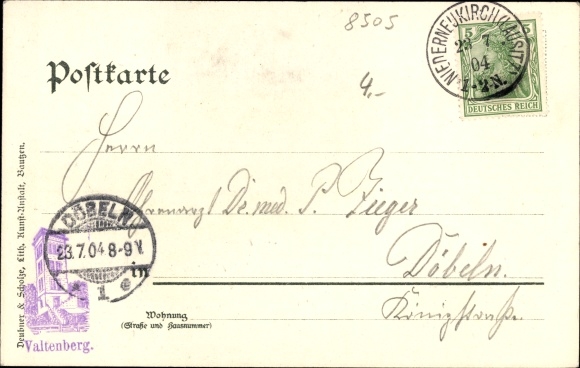 8505
NIEDERNEUKIRCH (LAUSITZ)
23 7
04
1-2 N.
5 5
DEUTSCHES REICH
Postkarte
4.-
Herrn
Oberarzt Dr. med. P. Zieger
DÖBELN
23.7.04 8-9 V.
1 e
in
Döbeln.
Königstraße.
Wohnung
(Straße und Hausnummer)
Valtenberg.
Deubner & Scholze, Lith. Kunst-Anstalt, Bautzen.